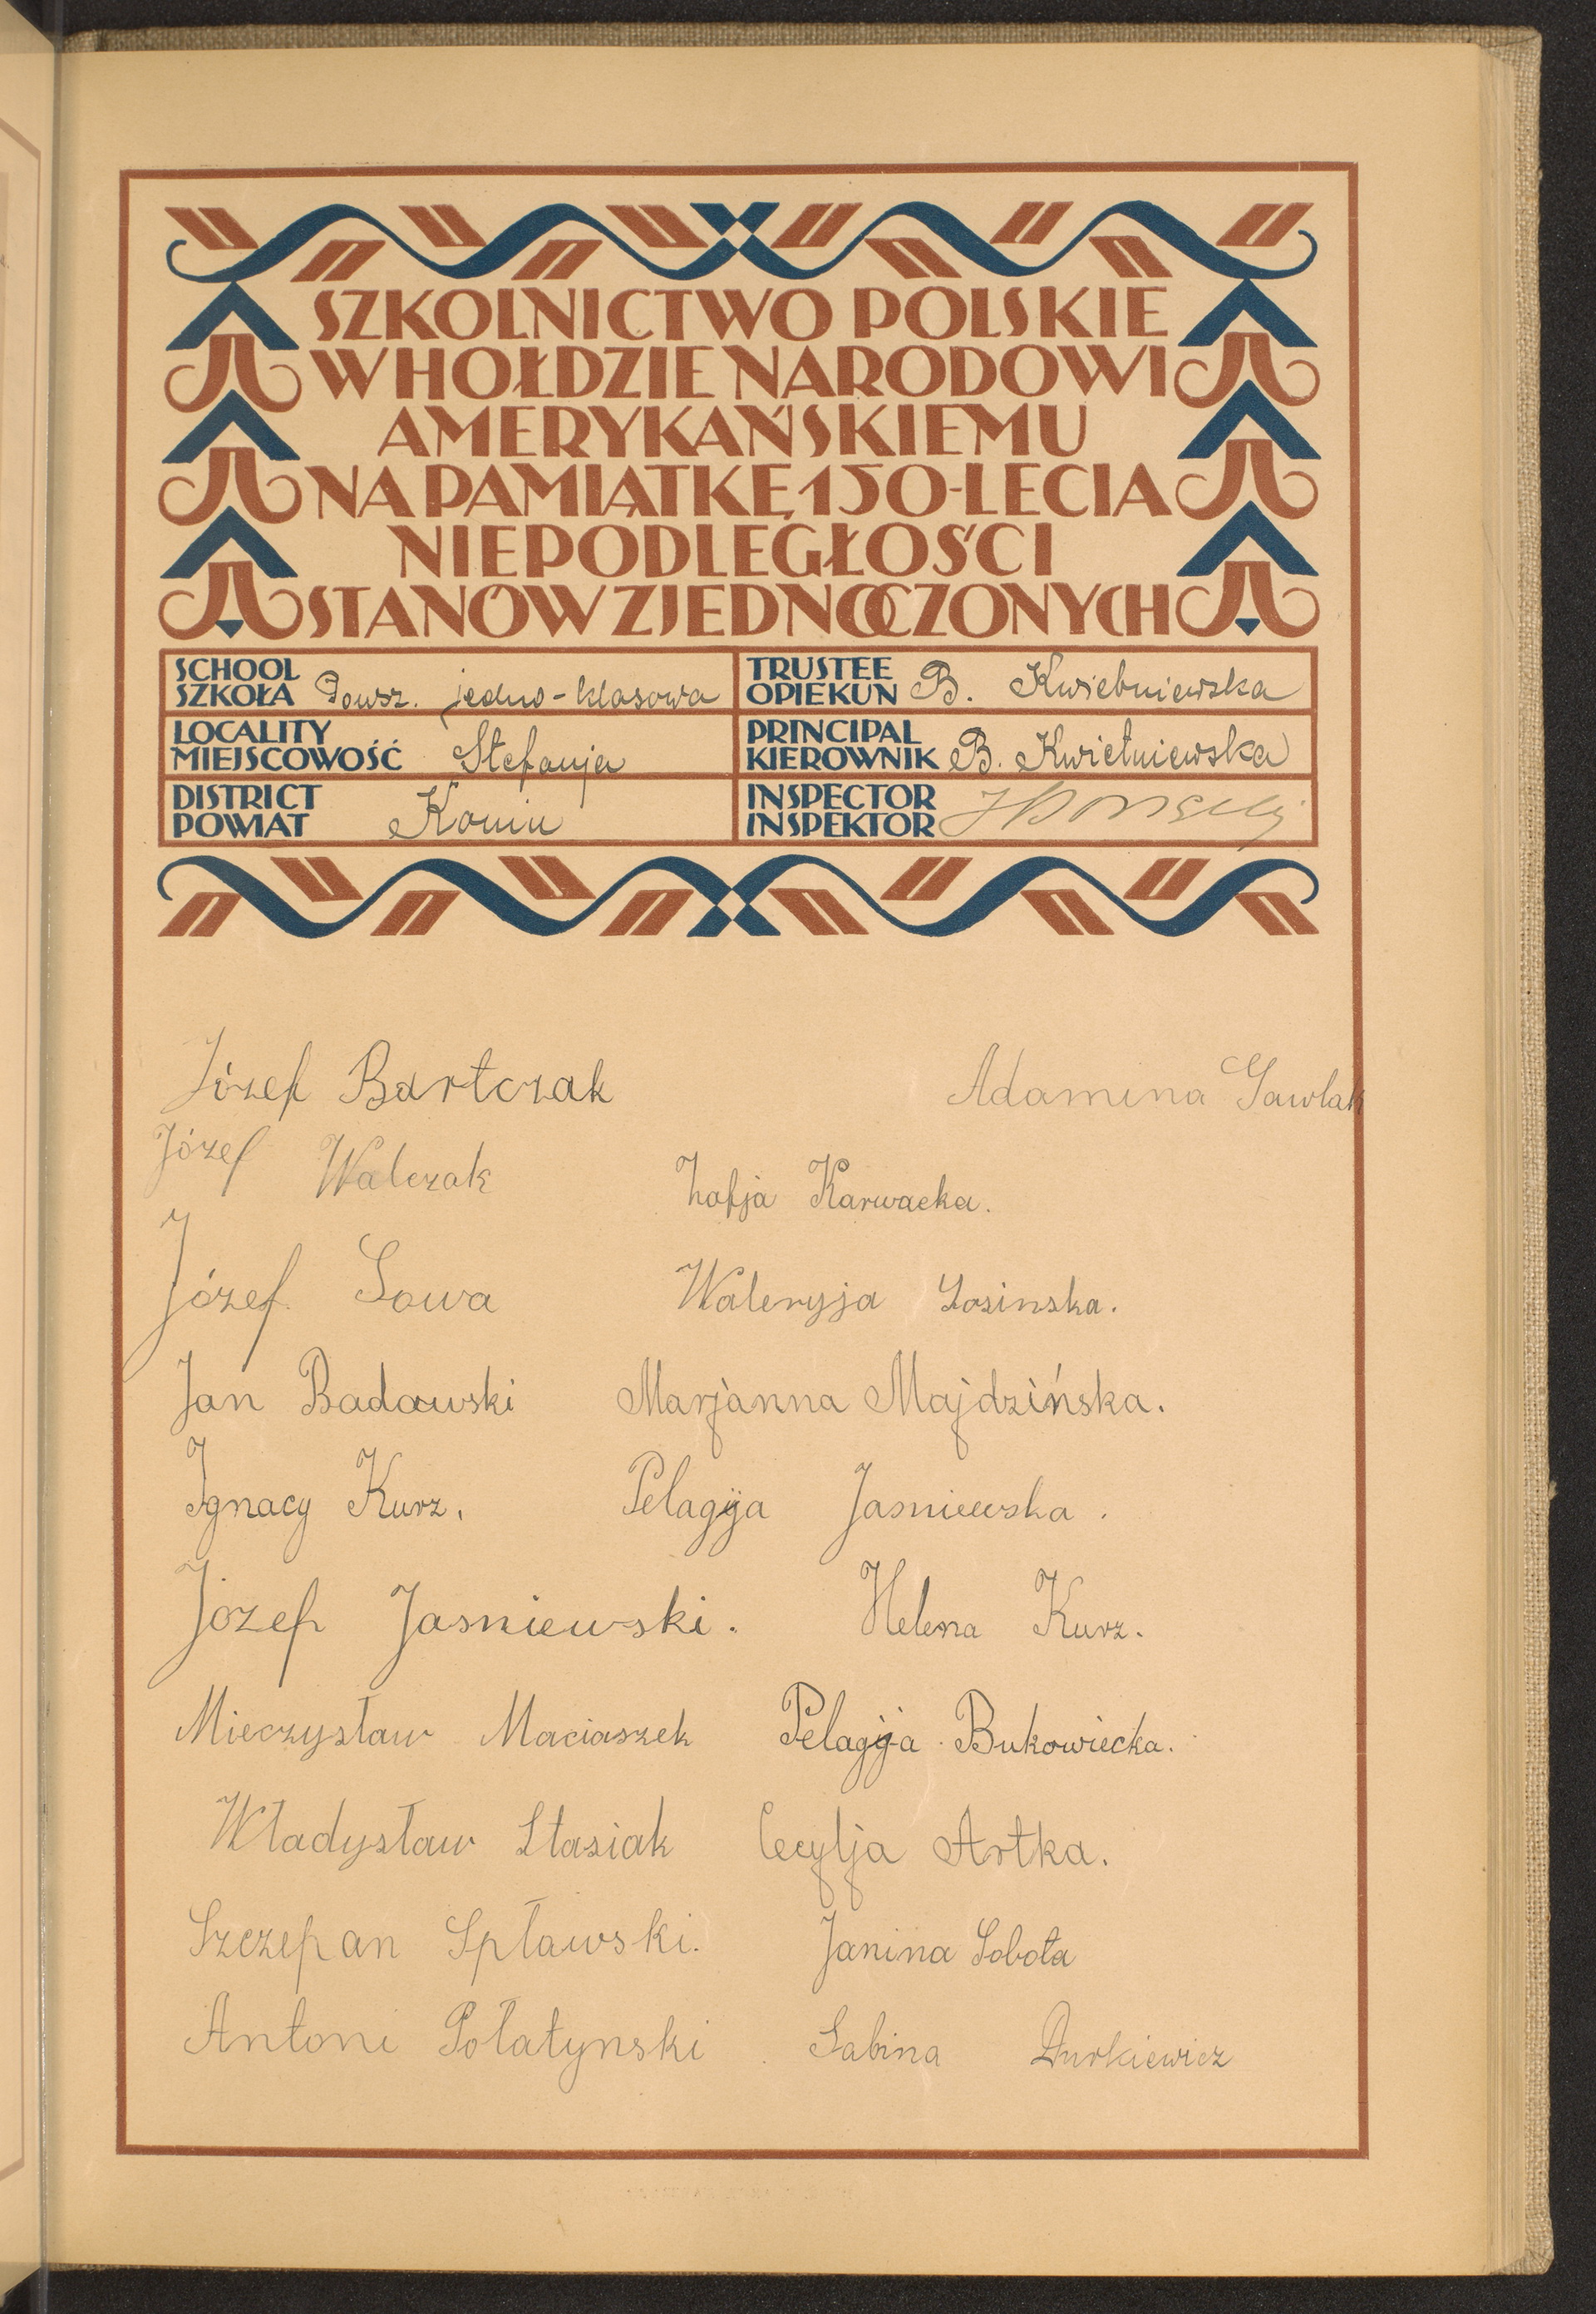 SZKOLNICTWO POLSKIE
W HOŁDZIE NARODOWI
AMERYKAŃSKIEMU
NA PAMIĄTKĘ 150-LECIA
NIEPODLEGŁOŚCI
STANÓW ZJEDNOCZONYCH
SCHOOL
SZKOŁA Powsz. jedno-klasowa
TRUSTEE
OPIEKUN B. Kwietniewska
LOCALITY
MIEJSCOWOŚĆ Stefanja
PRINCIPAL
KIEROWNIK B. Kwietniewska
DISTRICT
POWIAT Konin
INSPECTOR
INSPEKTOR
Józef Bartczak
Adamina Gawlak
Józef Walczak
Zofja Karwacka.
Józef Sowa
Waleryja Łosinska.
Jan Badowski
Marjanna Majdzińska.
Ignacy Kurz.
Pelagija Jasniewska.
Józef Jasniewski.
Helena Kurz.
Mieczysław Maciaszek
Pelagija Bukowiecka.
Władysław Stasiak
Cecylja Artka.
Szczepan Spławski.
Janina Sobota
Antoni Połatynski
Sabina Durkiewicz